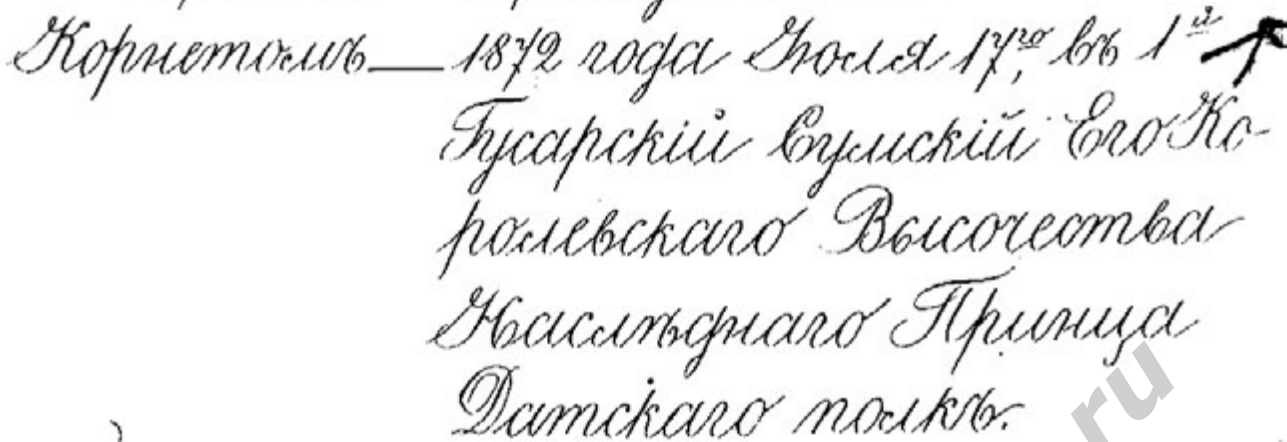 Корнетомъ — 1872 года Іюля 17го, въ 1й
Гусарскій Сумскій Его Ко-
ролевскаго Высочества
Наслѣднаго Принца
Датскаго полкъ.
ru